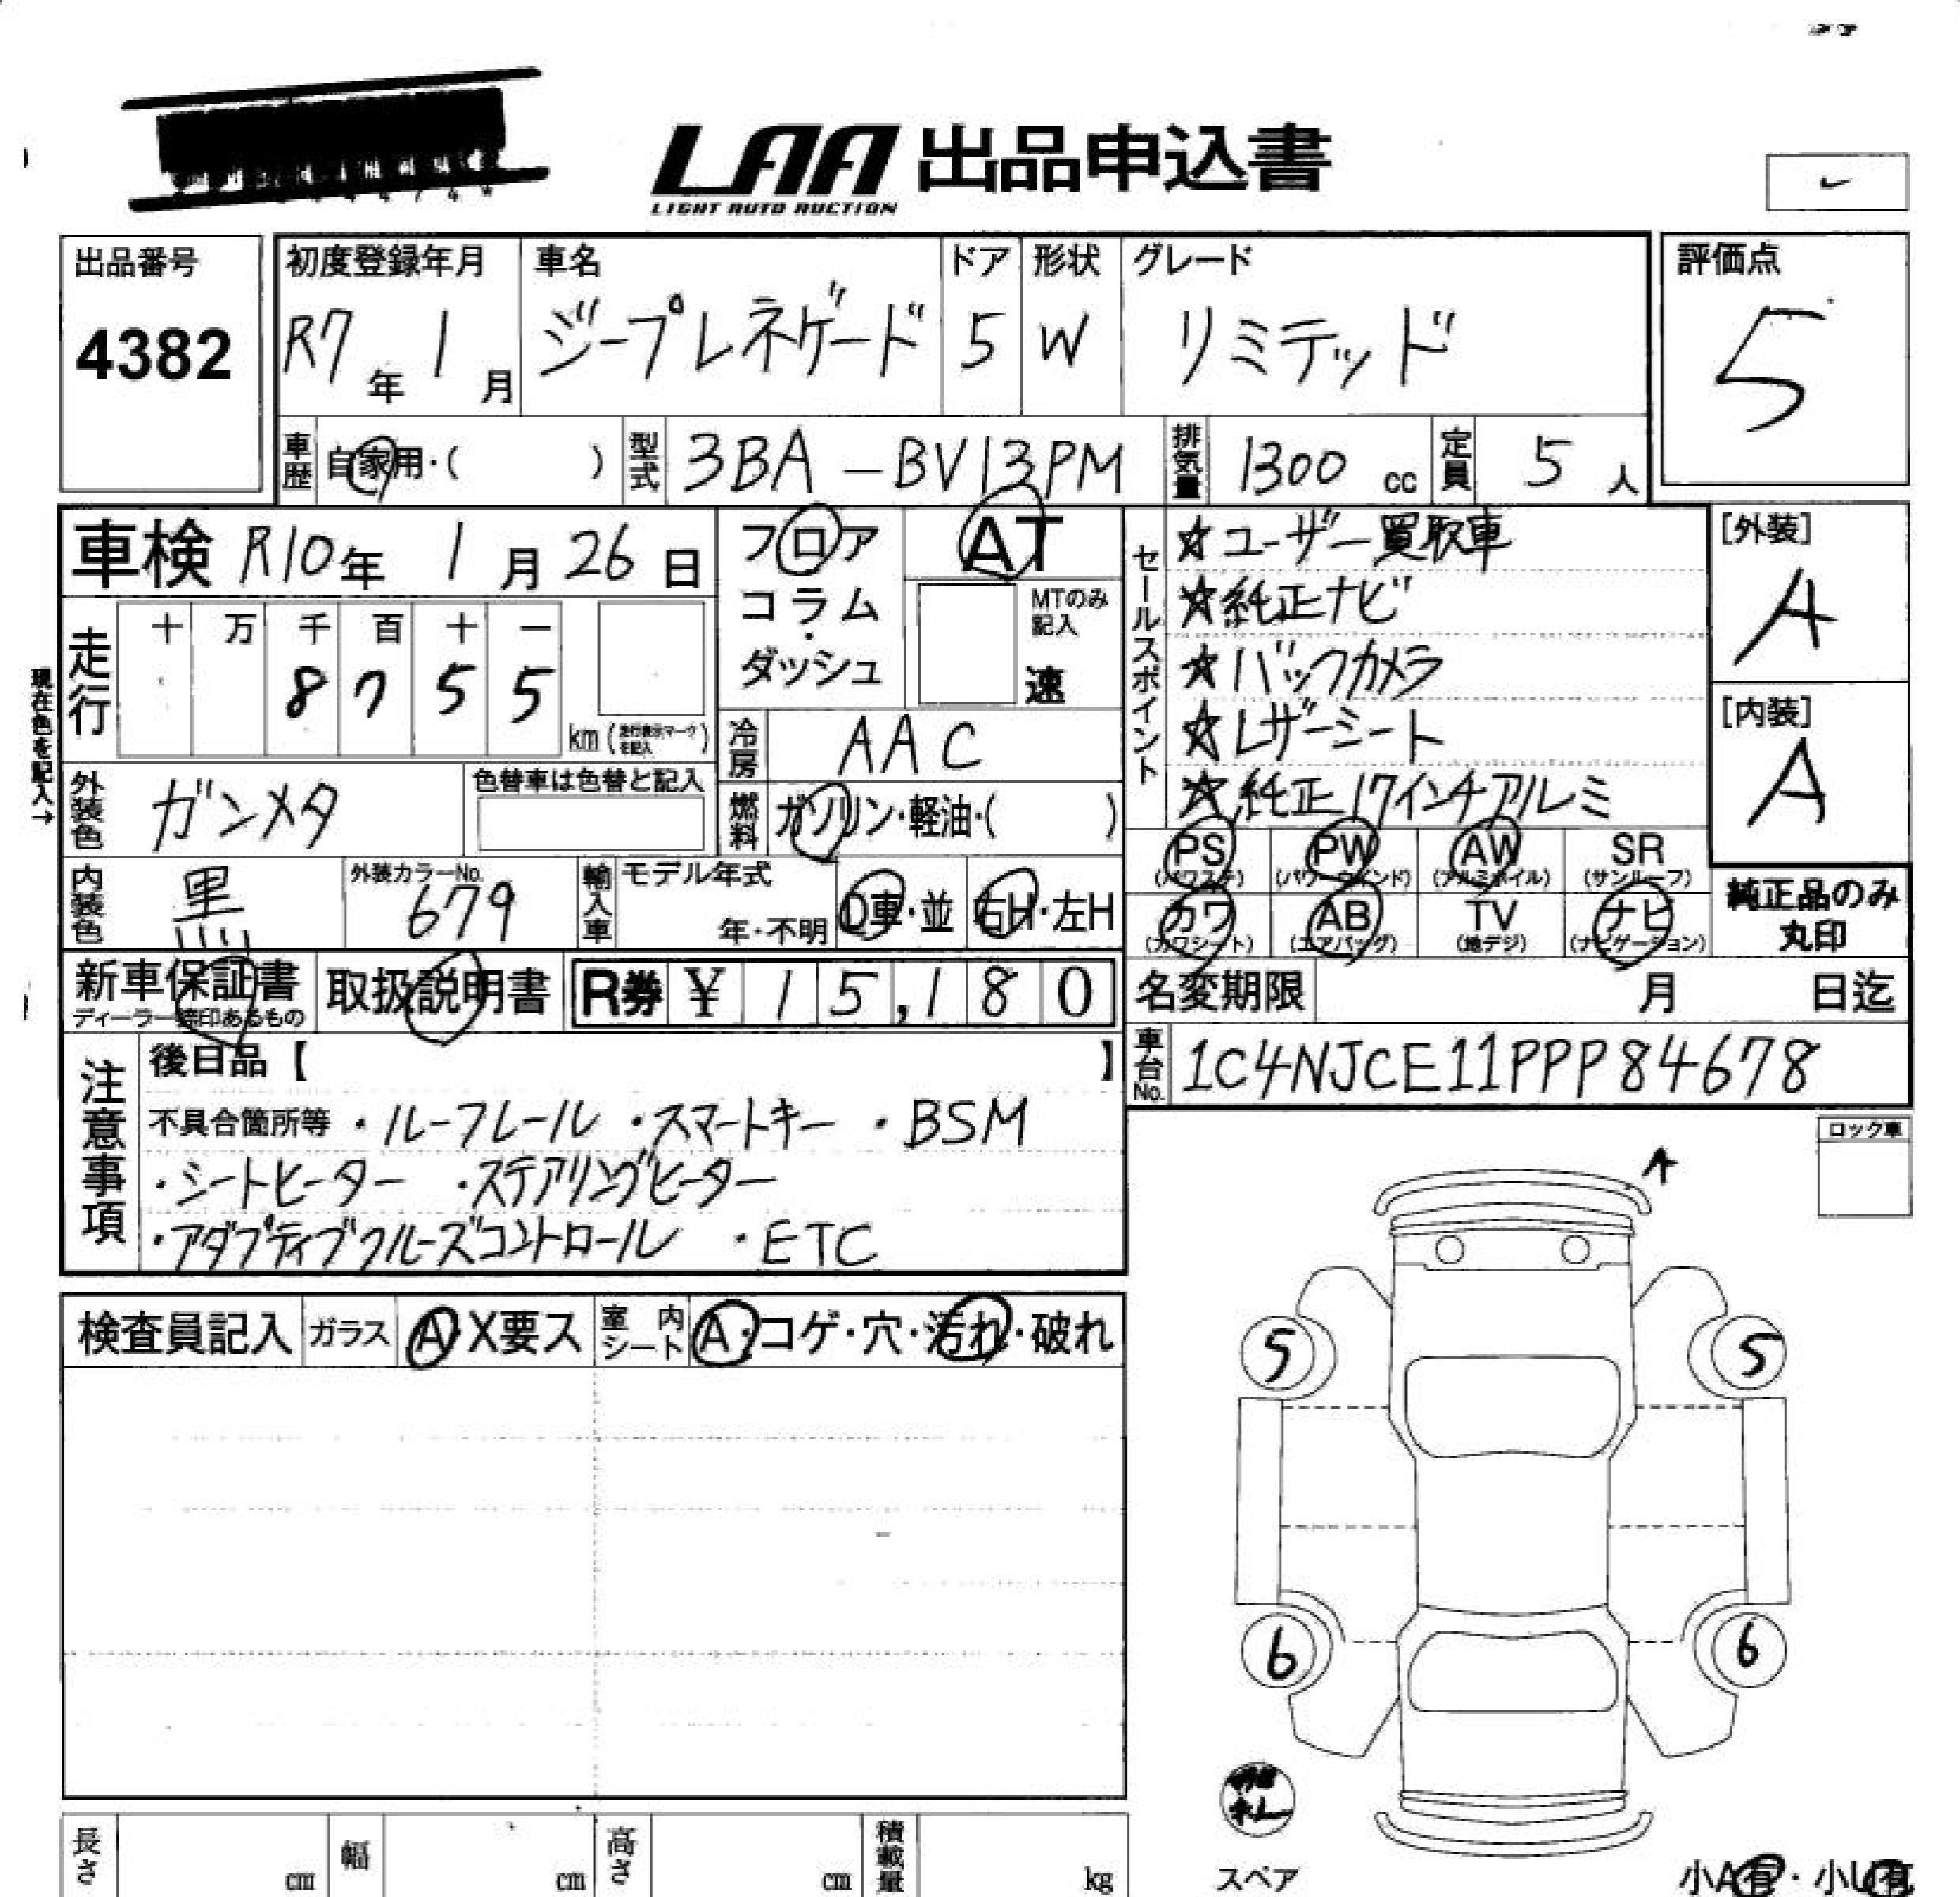 LAA 出品申込書
LIGHT AUTO AUCTION
出品番号
4382
初度登録年月
R7年 1月
車名
ジープレネゲード
ドア
5
形状
W
グレード
リミテッド
評価点
5
車歴
自家用・( )
型式
3BA-BV13PM
排気量
1300 cc
定員
5人
車検 R10年 1月 26日
フロア
コラム
・
ダッシュ
AT
MTのみ
記入
速
セールスポイント
☆ユーザー買取車
☆純正ナビ
☆バックカメラ
☆レザーシート
☆純正17インチアルミ
[外装]
A
[内装]
A
現在色を記入→
走行
十 万 千 百 十 一
8 7 5 5
km (走行表示マークを記入)
冷房
AAC
外装色
ガンメタ
色替車は色替と記入
燃料
ガソリン・軽油・( )
内装色
黒
外装カラーNo.
679
輸入車
モデル年式
年・不明
D車・並
右H・左H
PS
(パワステ)
PW
(パワーウインド)
AW
(アルミホイル)
SR
(サンルーフ)
カワ
(カワシート)
AB
(エアバッグ)
TV
(地デジ)
ナビ
(ナビゲーション)
純正品のみ
丸印
新車保証書
ディーラー締印あるもの
取扱説明書
R券 ¥ 15,180
名変期限 月 日迄
車台No.
1C4NJCE11PPP84678
注意事項
後日品【 】
不具合箇所等 ・ルーフレール ・スマートキー ・BSM
・シートヒーター ・ステアリングヒーター
・アダプティブクルーズコントロール ・ETC
ロック車
A
検査員記入
ガラス
A・X要ス
室内シート
A・コゲ・穴・汚れ・破れ
5
5
6
6
スペア
小A有・小U有
長さ cm
幅 cm
高さ cm
積載量 kg